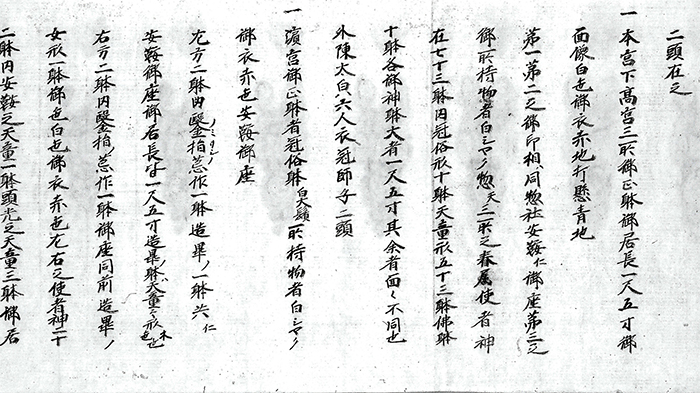 二頭在之
一本宮下髙宮三所御正躰御居長一尺五寸御
面像白也御衣赤地打懸青地
第一第二之御印相同惣社安鞍仁御座第三之
御所持物者白シマノ惣天二所之眷属使者神
在七十三躰内冠俗形十躰天童形五十三躰佛躰
十躰各御神躰大者一尺五寸其余者面〻不同也
外陳太白六人衣冠師子二頭
一濱宮御正躰者冠俗躰白大鬚所持物者白シマノ
御衣赤也安鞍御座
左方二躰内竪指ノミヲシノ惣作一躰造畢ノ一躰共仁
安鞍御座御居長サ一尺五寸造畢ノ躰天童之形木也
右方二躰内竪指ノ惣作一躰御座同前造畢ノ
女形一躰御色白也御衣赤色左右之使者神二十
二躰内安鞍之天童一躰頭光之天童三躰御居